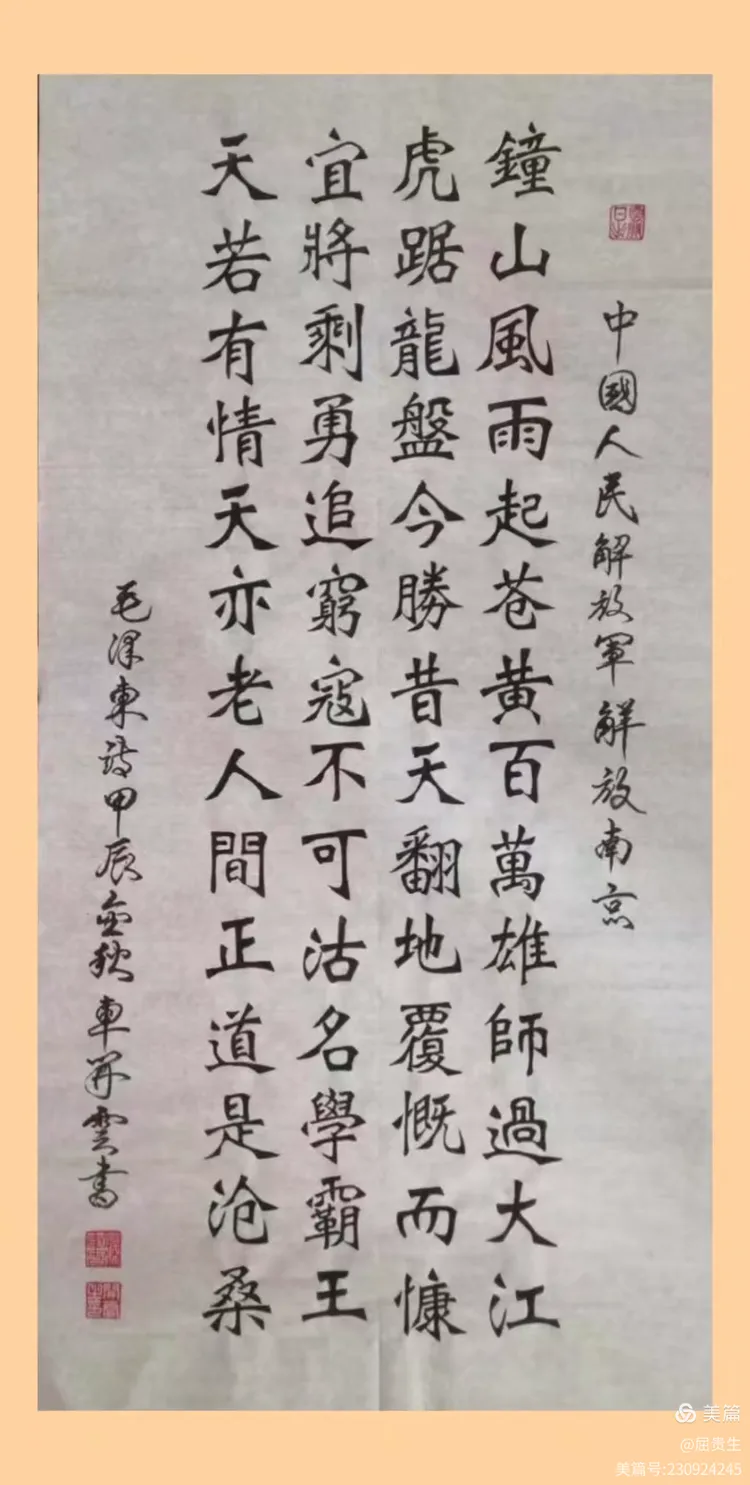 中國人民解放軍解放南京
鐘山風雨起苍黄百萬雄師過大江
虎踞龍盤今勝昔天翻地覆慨而慷
宜將剩勇追窮寇不可沽名學霸王
天若有情天亦老人間正道是沧桑
毛泽東詩甲辰金秋車開雲書
美篇
@屈贵生
美篇号:230924245